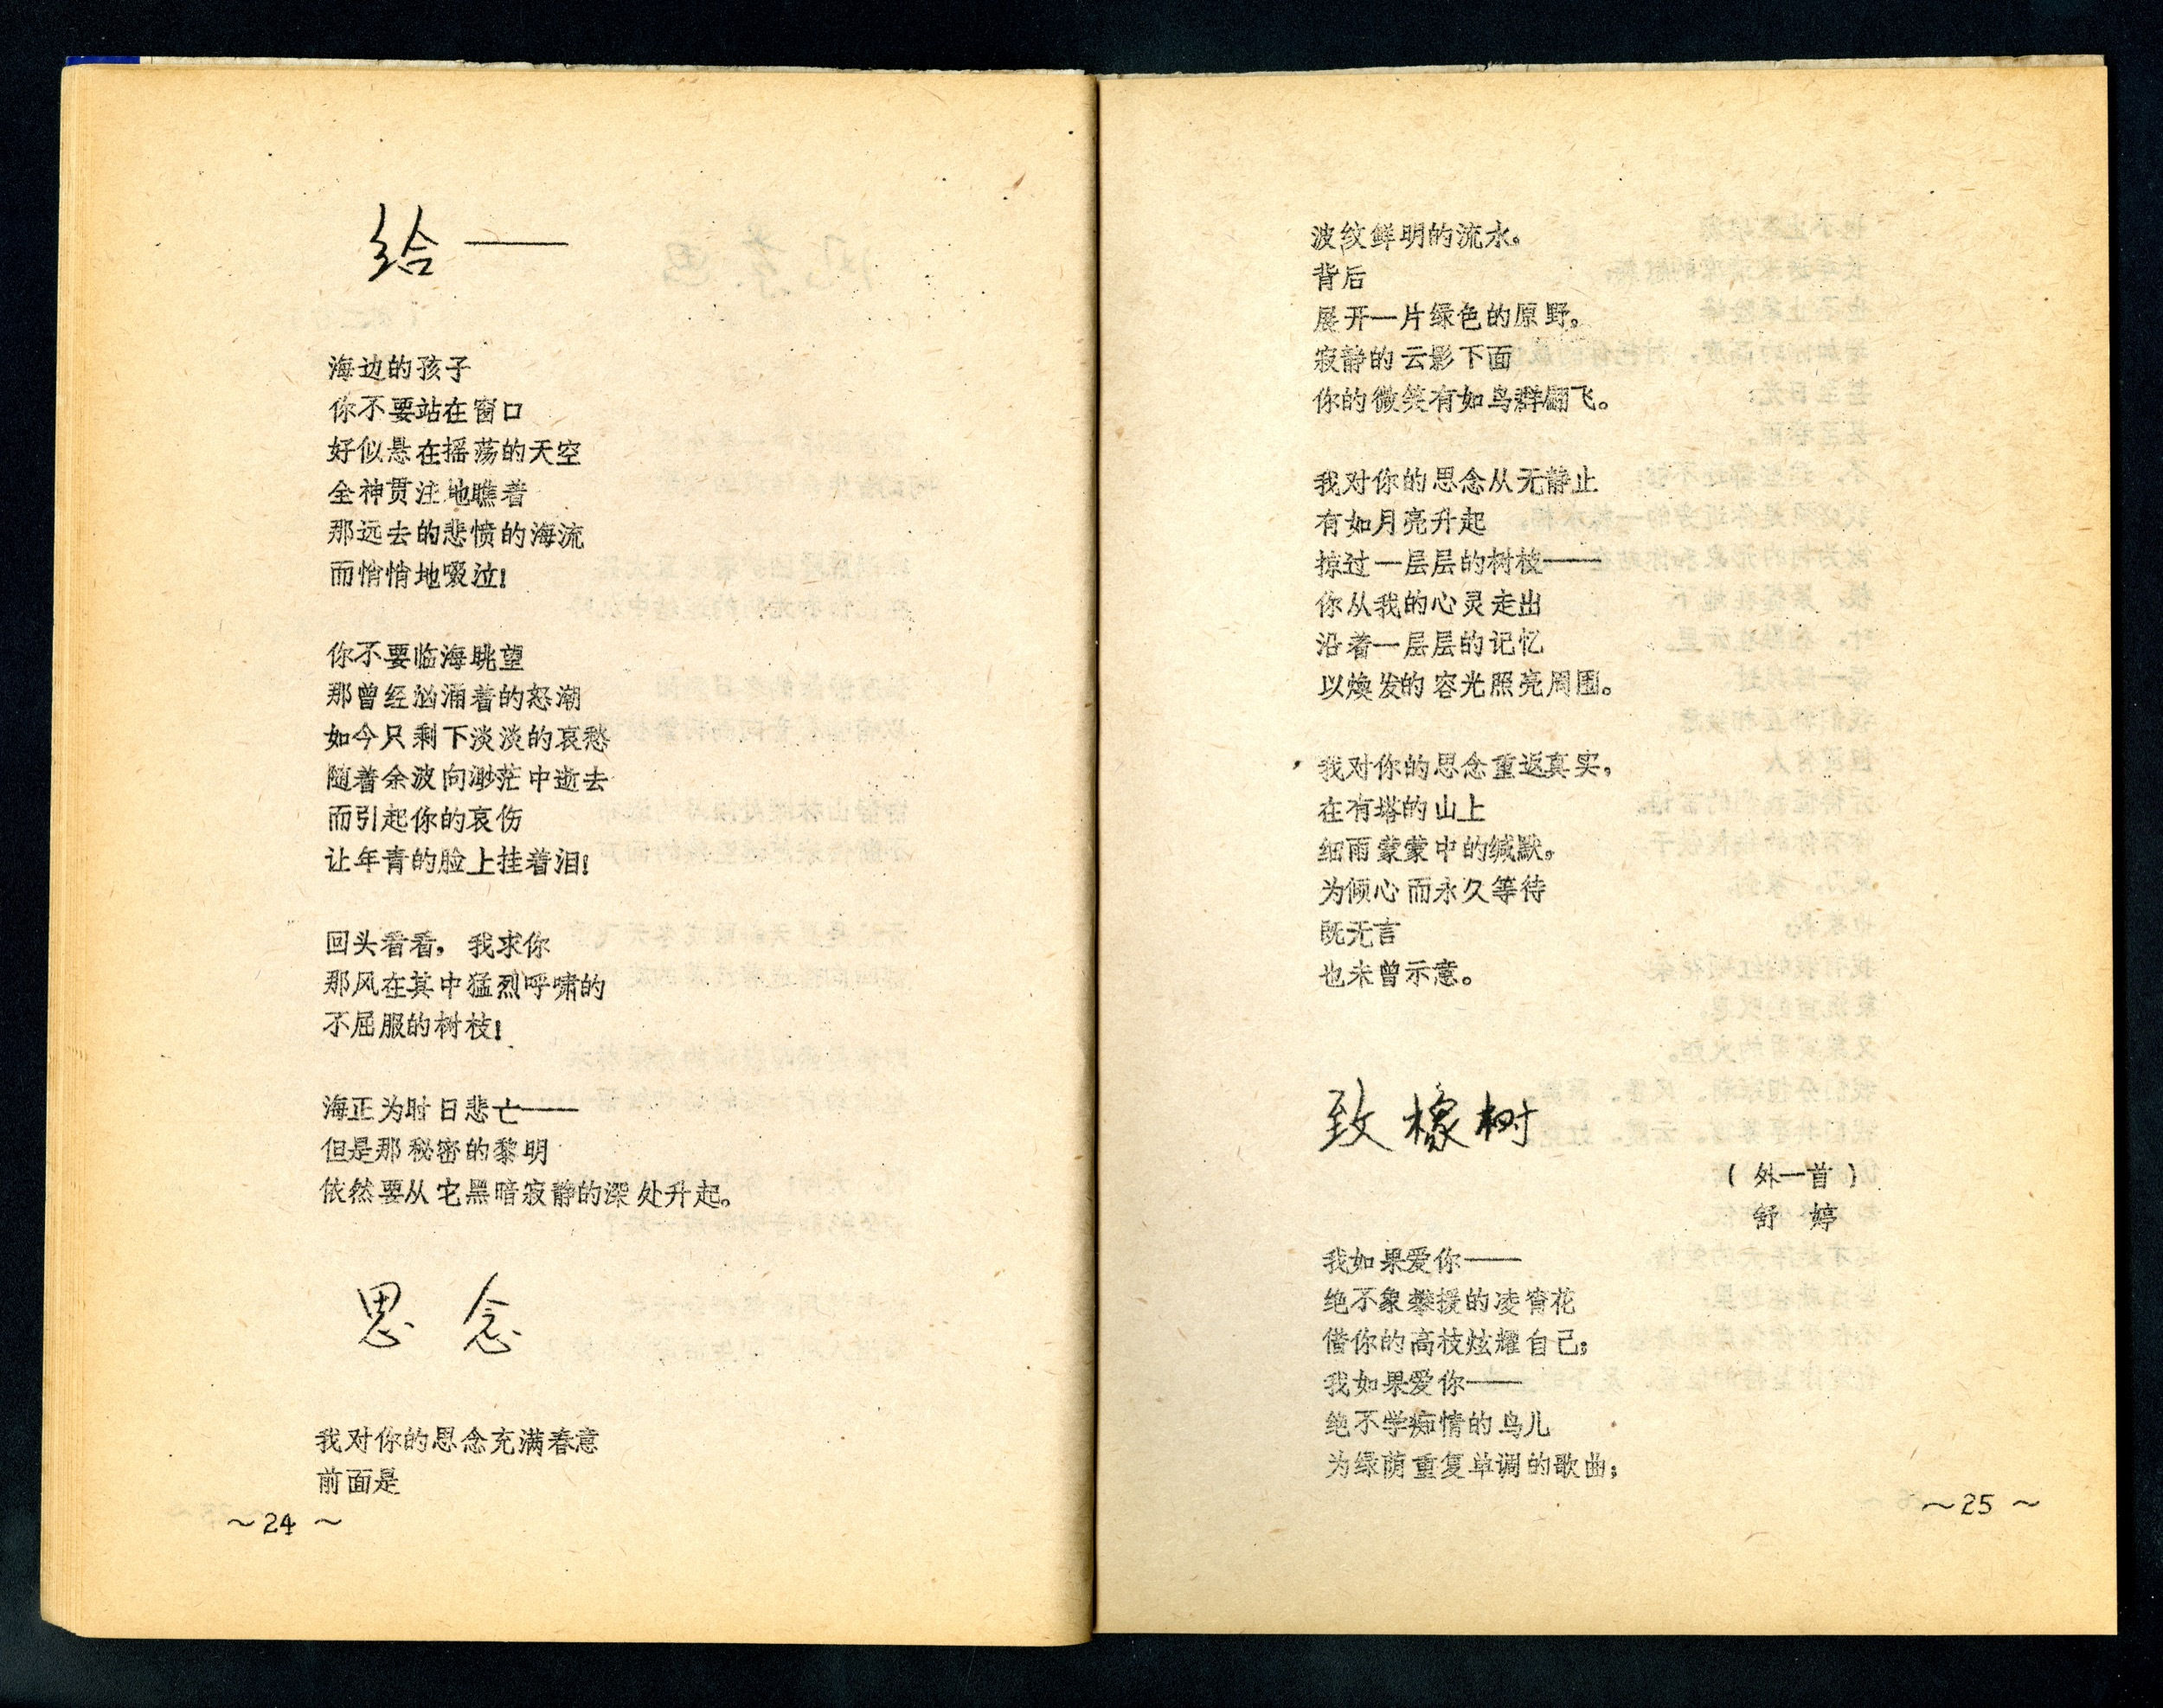 给——
海边的孩子
你不要站在窗口
好似悬在摇荡的天空
全神贯注地瞧着
那远去的悲愤的海流
而悄悄地啜泣！
你不要临海眺望
那曾经汹涌着的怒潮
如今只剩下淡淡的哀愁
随着余波向渺茫中逝去
而引起你的哀伤
让年青的脸上挂着泪！
回头看看，我求你
那风在其中猛烈呼啸的
不屈服的树枝！
海正为时日悲亡——
但是那秘密的黎明
依然要从它黑暗寂静的深处升起。
思念
我对你的思念充满春意
前面是
～24～
波纹鲜明的流水。
背后
展开一片绿色的原野。
寂静的云影下面
你的微笑有如鸟群翩飞。
我对你的思念从无静止
有如月亮升起
掠过一层层的树枝——
你从我的心灵走出
沿着一层层的记忆
以焕发的容光照亮周围。
我对你的思念重返真实，
在有塔的山上
细雨蒙蒙中的缄默。
为倾心而永久等待
既无言
也未曾示意。
致橡树
（外一首）
舒婷
我如果爱你——
绝不象攀援的凌霄花
借你的高枝炫耀自己；
我如果爱你——
绝不学痴情的鸟儿
为绿荫重复单调的歌曲；
～25～